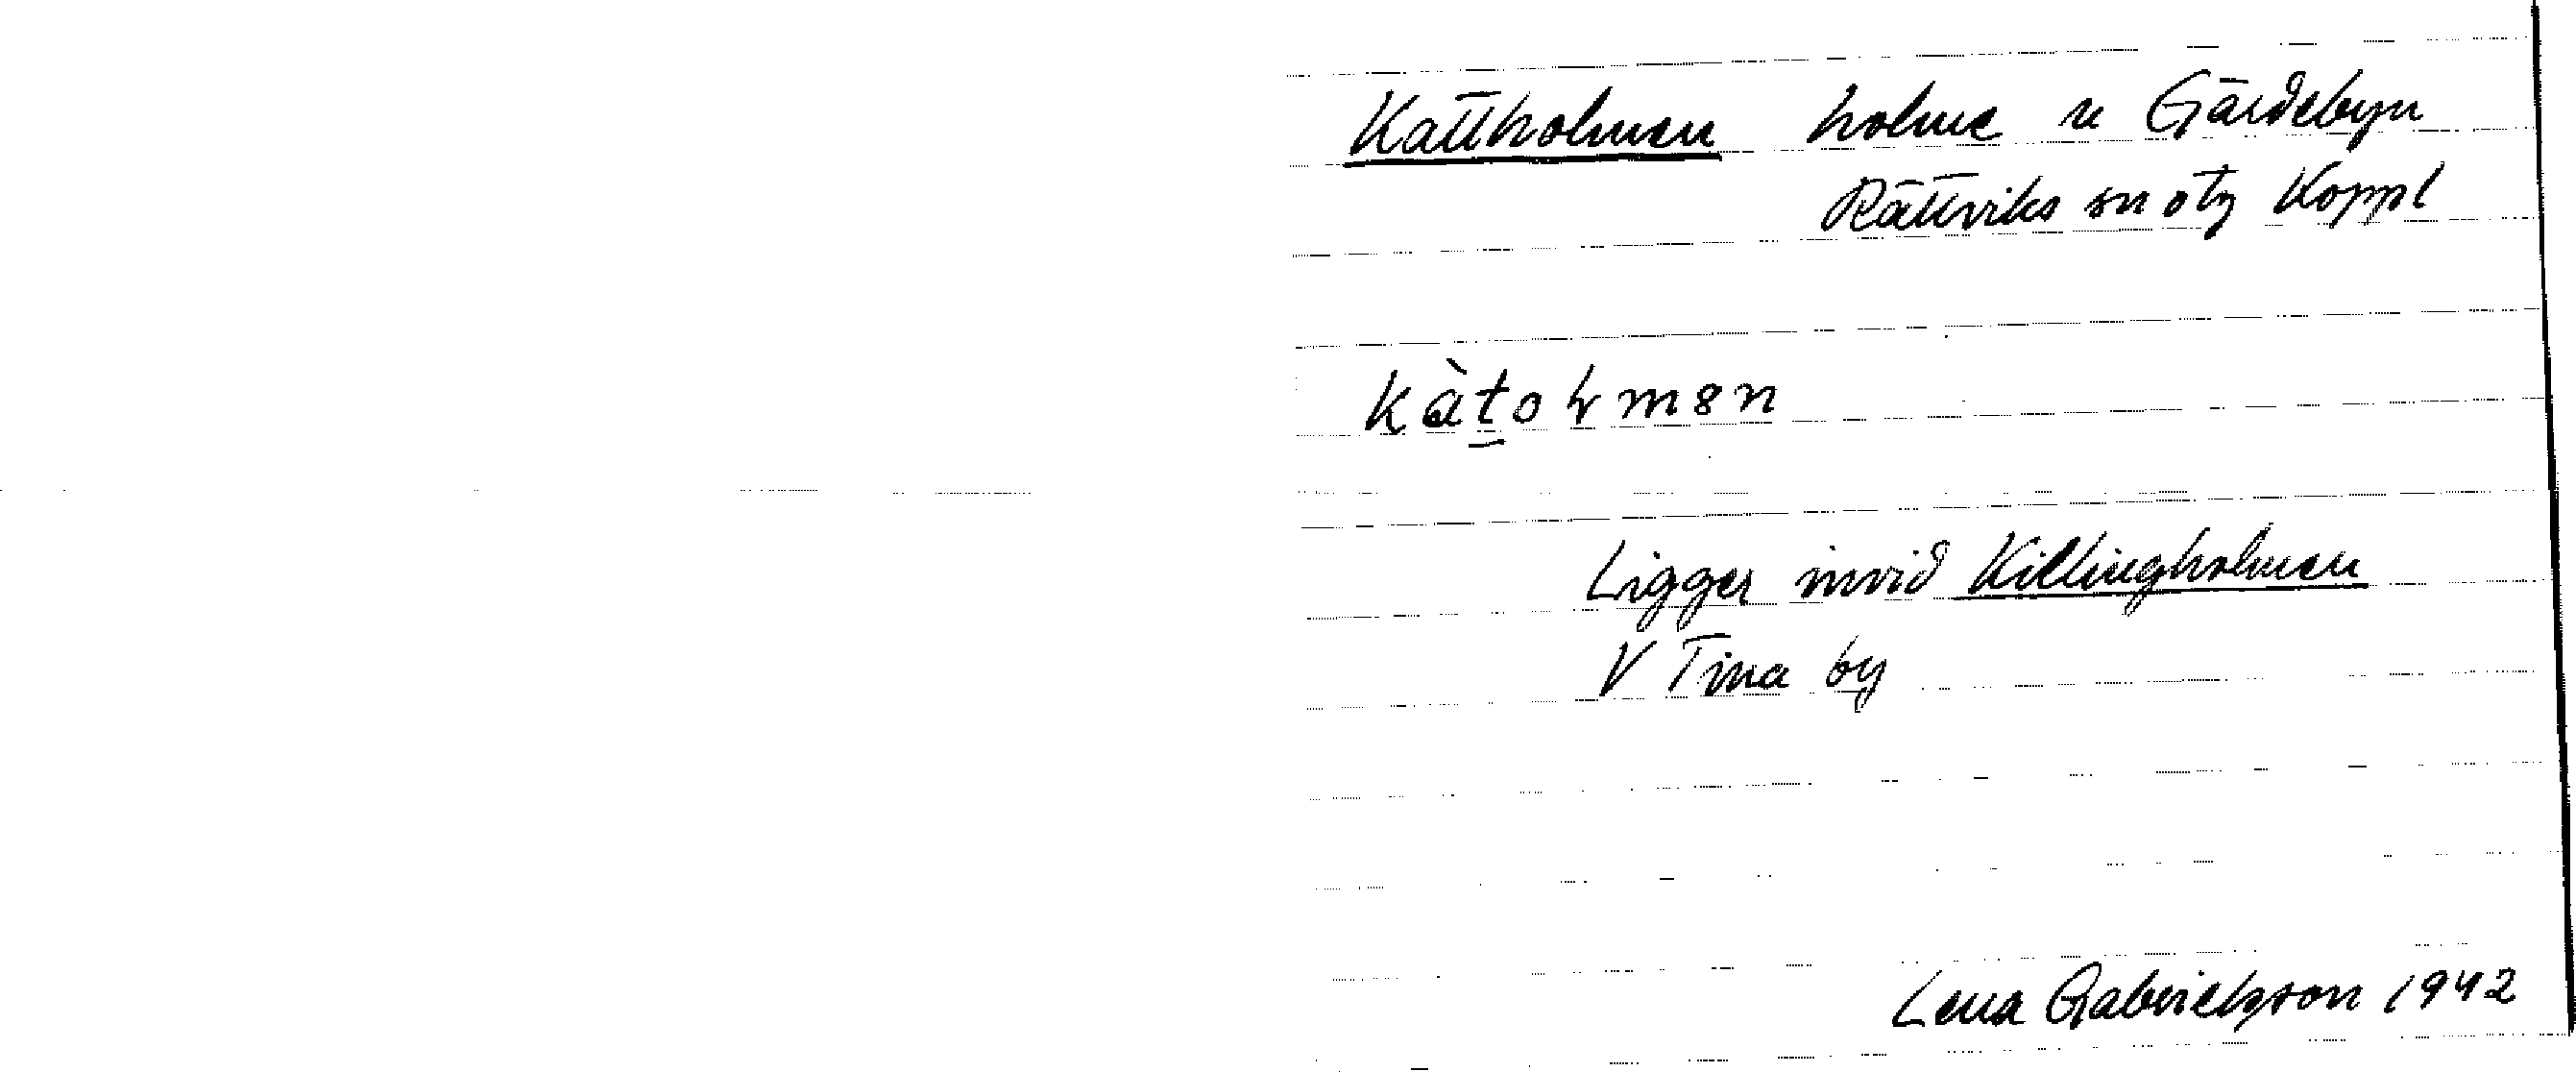 Kattholmen holme n Gärdebyn
Rättviks sn o tg Koppl
kàtoɫmən
Ligger invid Killingholmen
V Tina by
Lena Gabrielsson 1942